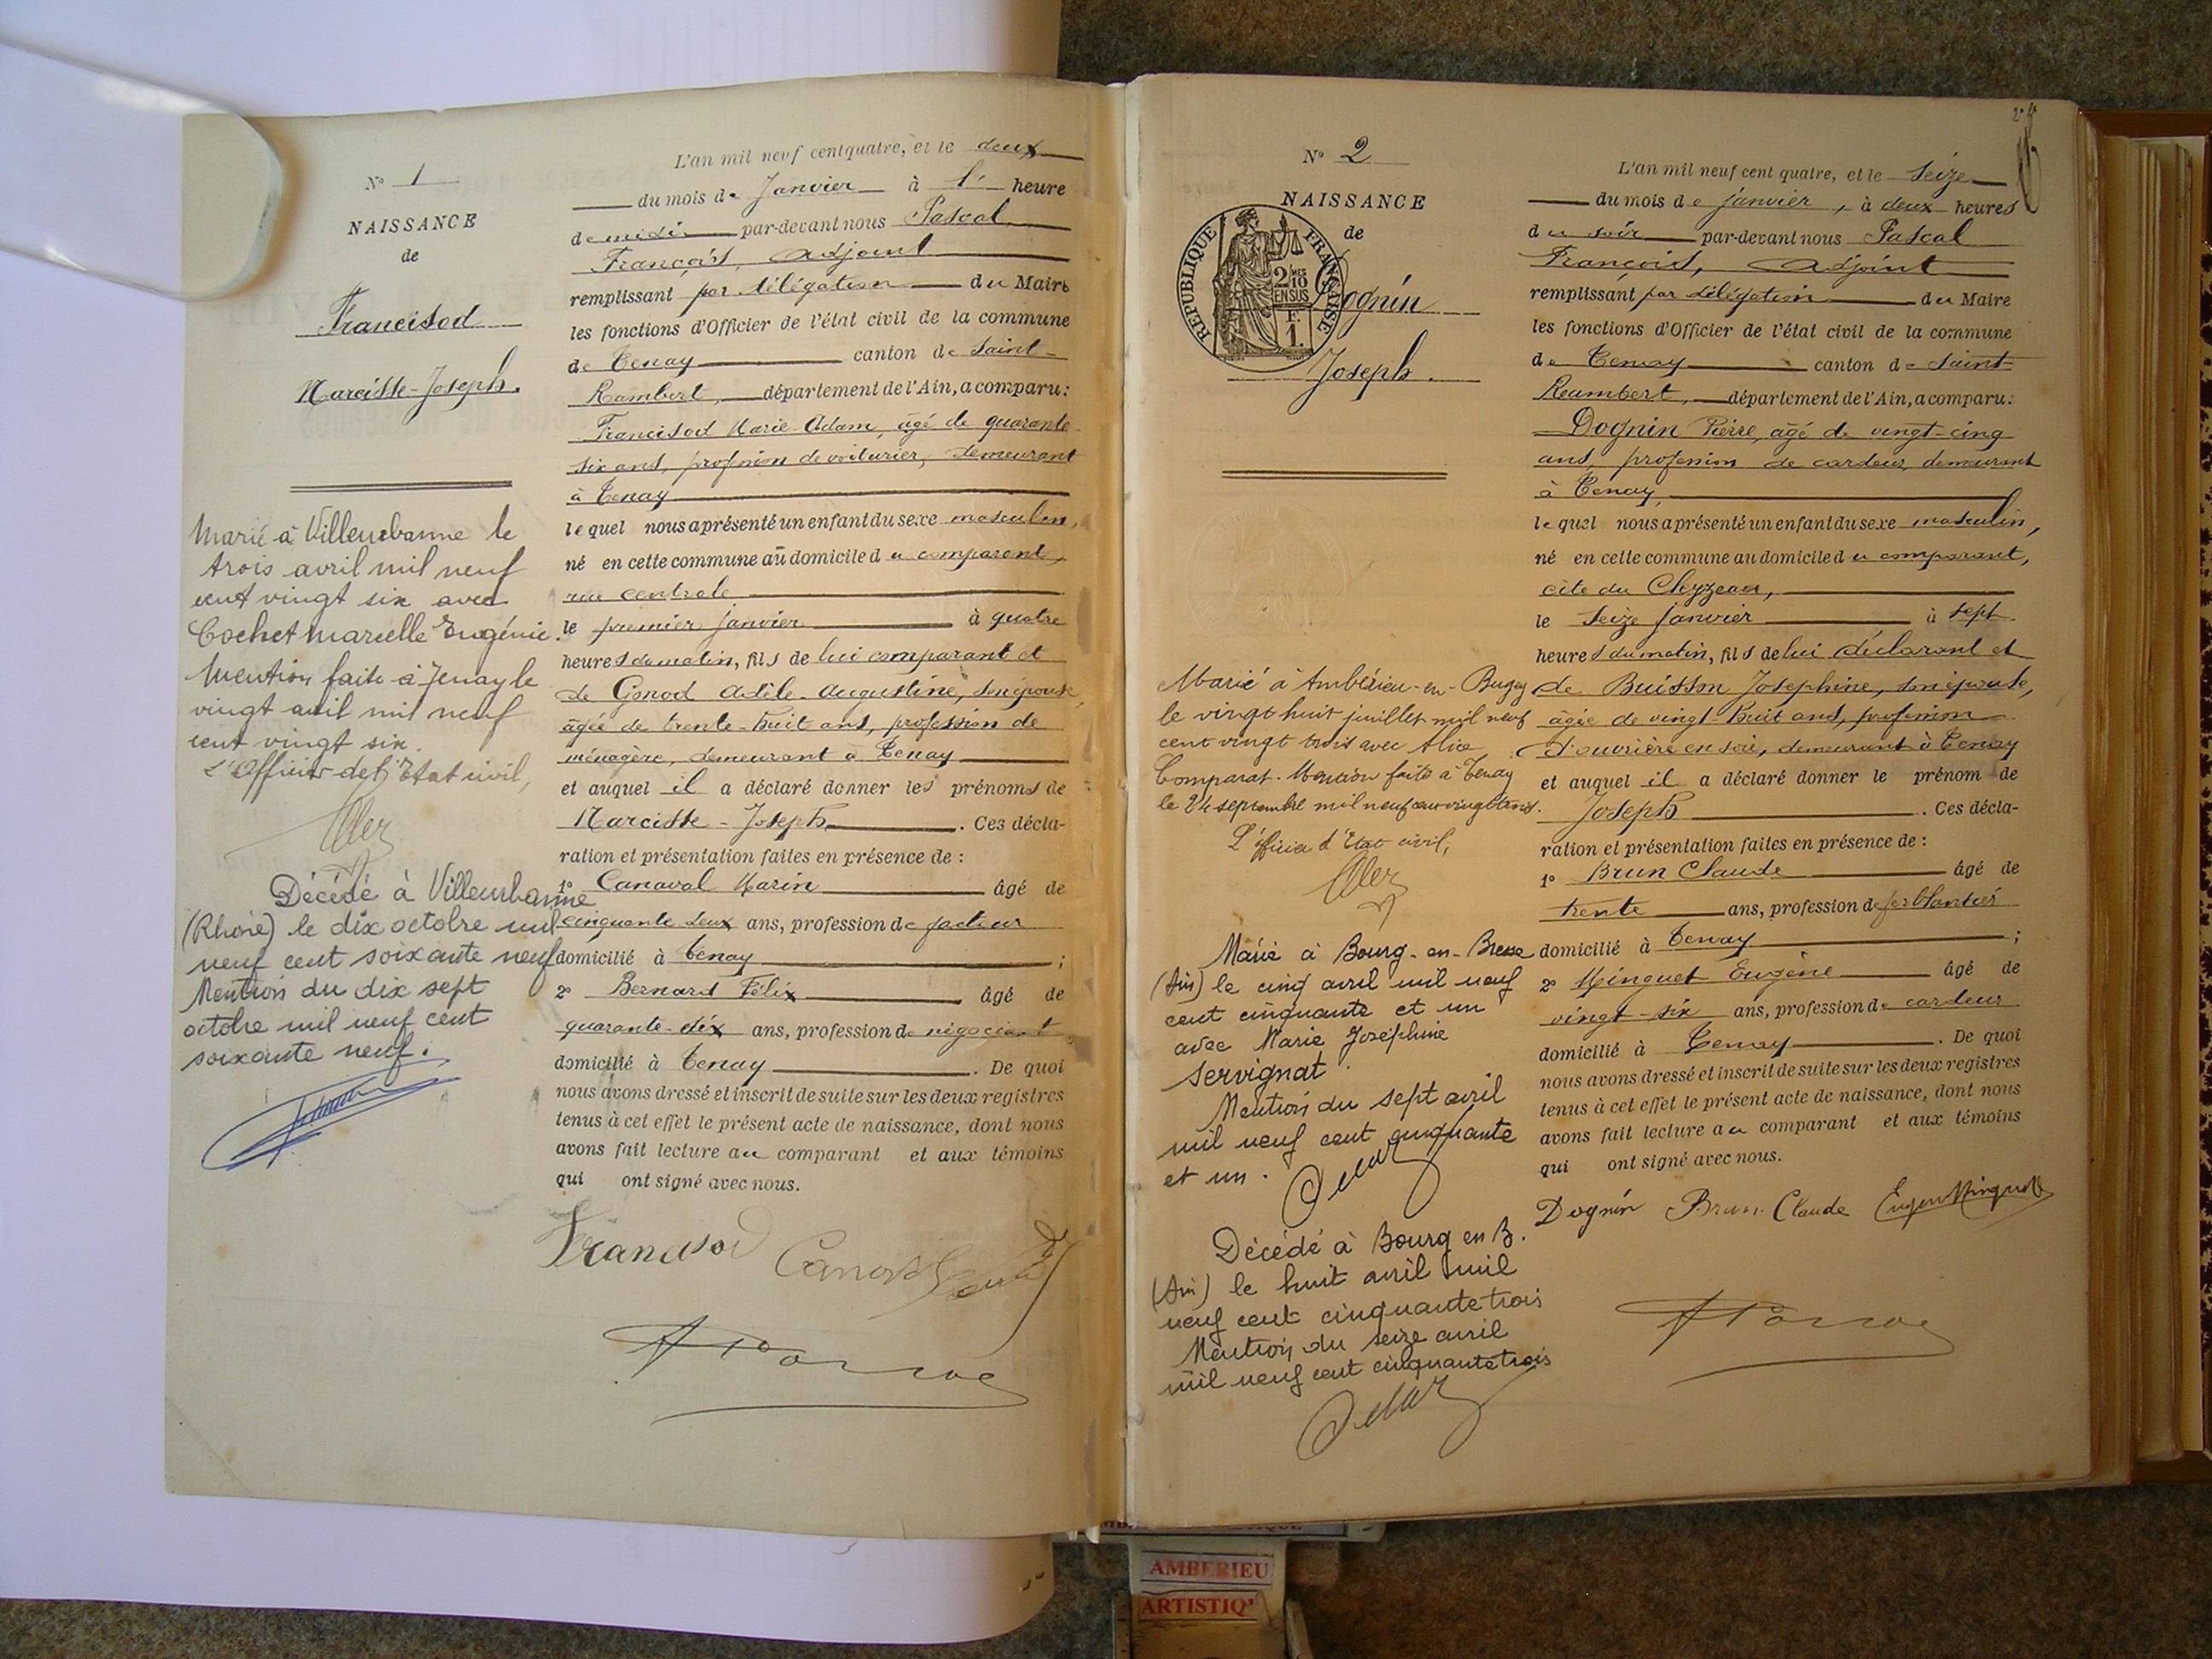 N° 1
NAISSANCE
de
Francisod
Narcisse-Joseph.
Marié à Villeurbanne le
trois avril mil neuf
cent vingt six avec
Cochet Marcelle Eugénie.
Mention faite à Tenay le
vingt avril mil neuf
cent vingt six.
L'Officier de l'Etat civil,
Décédé à Villeurbanne
(Rhône) le dix octobre mil
neuf cent soixante neuf
Mention du dix sept
octobre mil neuf cent
soixante neuf.
L'an mil neuf cent quatre, et le deux
du mois de Janvier à 1 heure
de midi par-devant nous Pascal
François, adjoint
remplissant par délégation du Maire
les fonctions d'Officier de l'état civil de la commune
de Tenay canton de Saint-
Rambert, département de l'Ain, a comparu:
Francisod Marie Adam, âgé de quarante
six ans, profession de voiturier, demeurant
à Tenay
lequel nous a présenté un enfant du sexe masculin,
né en cette commune au domicile du comparant,
rue centrale
le premier janvier à quatre
heures du matin, fils de lui comparant et
de Gonod Adèle-Augustine, son épouse,
âgée de trente-huit ans, profession de
ménagère, demeurant à Tenay
et auquel il a déclaré donner les prénoms de
Narcisse-Joseph. Ces décla-
ration et présentation faites en présence de :
1° Canaval Marin âgé de
cinquante deux ans, profession de facteur
domicilié à Tenay ;
2° Bernard Félix âgé de
quarante-dix ans, profession de négociant
domicilié à Tenay. De quoi
nous avons dressé et inscrit de suite sur les deux registres
tenus à cet effet le présent acte de naissance, dont nous
avons fait lecture au comparant et aux témoins
qui ont signé avec nous.
Francisod
N° 2
NAISSANCE
de
REPUBLIQUE FRANÇAISE
2/10MES
EN SUS
F.
1.
Dognin
Joseph.
Marié à Ambérieu-en-Bugey
le vingt huit juillet mil neuf
cent vingt trois avec Alice
Comparat. Mention faite à Tenay
le 24 septembre mil neuf cent vingt trois.
L'officier d'Etat civil,
Marié à Bourg-en-Bresse
(Ain) le cinq avril mil neuf
cent cinquante et un
avec Marie Joséphine
Servignat.
Mention du sept avril
mil neuf cent cinquante
et un.
Décédé à Bourg en B.
(Ain) le huit avril mil
neuf cent cinquante trois
Mention du seize avril
mil neuf cent cinquante trois
L'an mil neuf cent quatre, et le seize
du mois de janvier, à deux heures
du soir par-devant nous Pascal
François, adjoint
remplissant par délégation du Maire
les fonctions d'Officier de l'état civil de la commune
de Tenay canton de Saint-
Rambert, département de l'Ain, a comparu:
Dognin Pierre, âgé de vingt-cinq
ans, profession de cardeur, demeurant
à Tenay,
lequel nous a présenté un enfant du sexe masculin,
né en cette commune au domicile du comparant,
cité du Chyzeau,
le seize janvier à sept
heures du matin, fils de lui déclarant et
de Buisson Josephine, son épouse,
âgée de vingt-huit ans, profession
d'ouvrière en soie, demeurant à Tenay
et auquel il a déclaré donner le prénom de
Joseph. Ces décla-
ration et présentation faites en présence de :
1° Brun Claude âgé de
trente ans, profession de ferblantier
domicilié à Tenay ;
2° Minguet Eugène âgé de
vingt-six ans, profession de cardeur
domicilié à Tenay. De quoi
nous avons dressé et inscrit de suite sur les deux registres
tenus à cet effet le présent acte de naissance, dont nous
avons fait lecture au comparant et aux témoins
qui ont signé avec nous.
Dognin Brun Claude Eugène Minguet
AMBERIEU
ARTISTIQ'